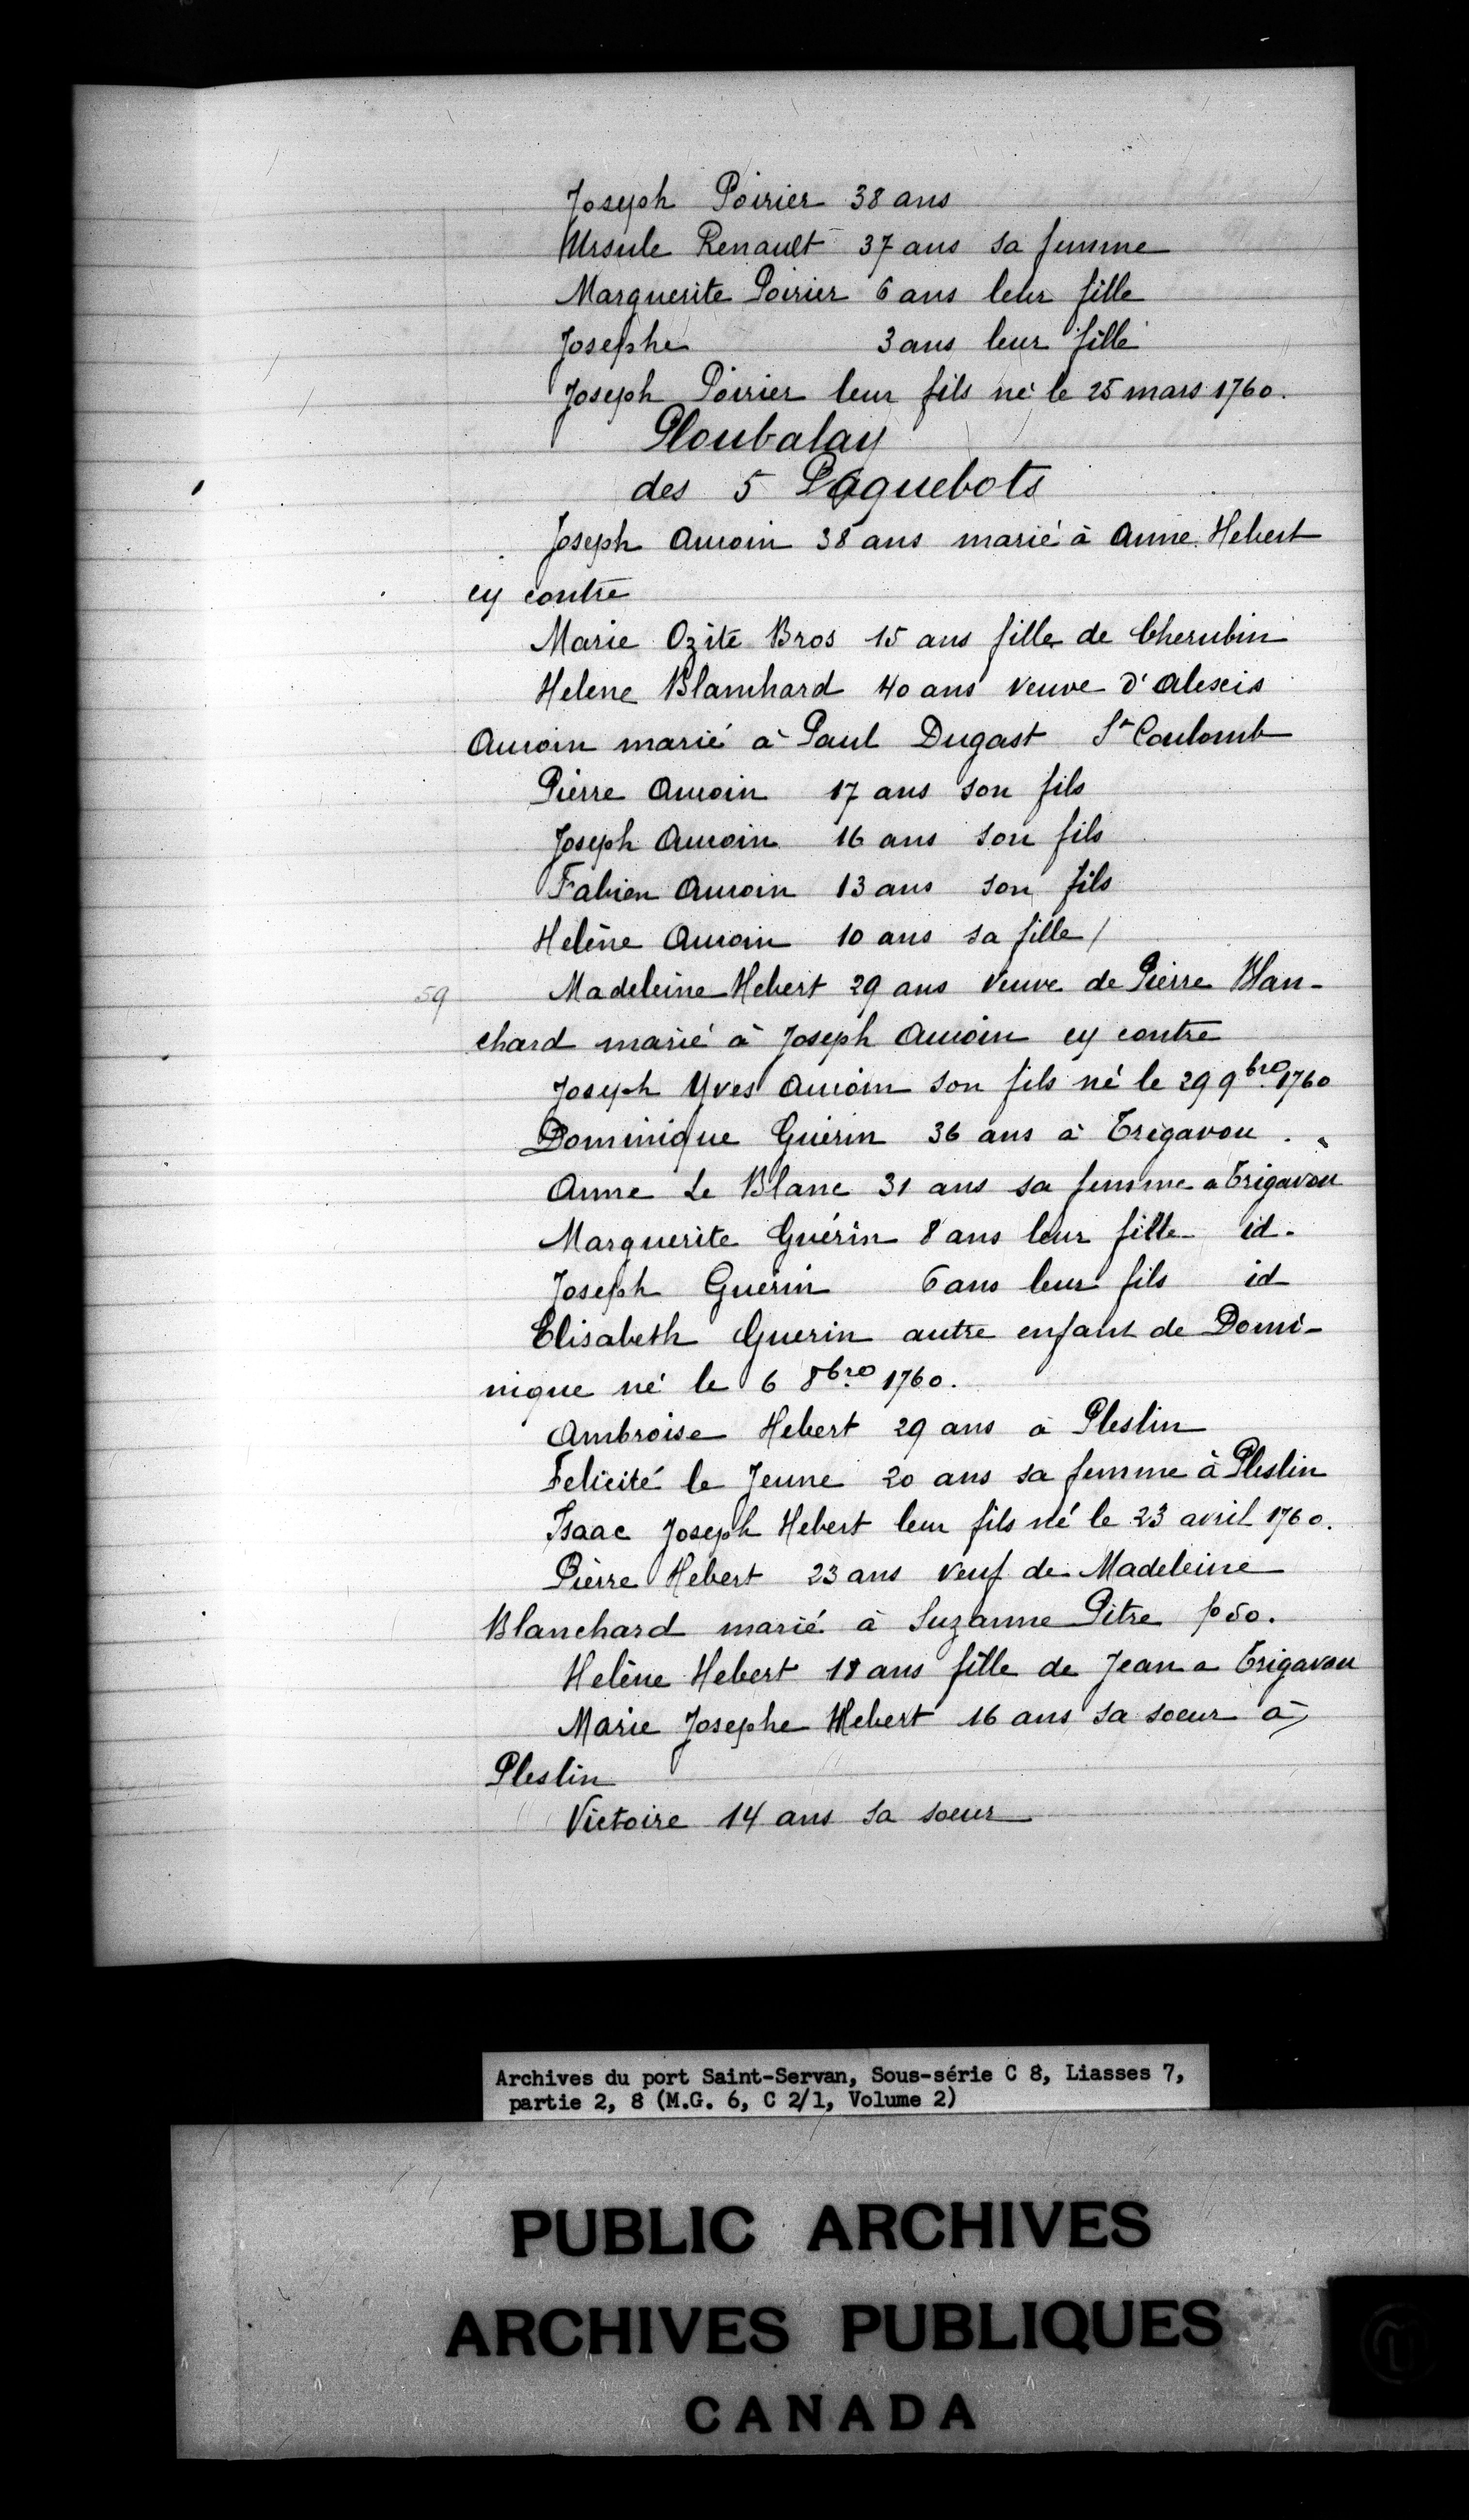 Joseph Poirier 38 ans
Ursule Renault 37 ans sa femme
Marguerite Poirier 6 ans leur fille
Josephe 3 ans leur fille
Joseph Poirier leur fils né le 25 mars 1760.
Ploubalay
des 5 Paquebots
Joseph Auroin 38 ans marié à Anne Hebert
cy contre
Marie Ozite Bros 15 ans fille de Cherubin
Helene Blanchard 40 ans veuve d'Alexis
Auroin marié à Paul Dugast St Coulomb
Pierre Auroin 17 ans son fils
Joseph Auroin 16 ans son fils
Fabien Auroin 13 ans son fils
Helène Auroin 10 ans sa fille /
59 Madeleine Hebert 29 ans veuve de Pierre Blan-
chard marié à Joseph Auroin cy contre
Joseph Yves Auroin son fils né le 29 9bre 1760
Dominique Guérin 36 ans à Trégavou .
Anne Le Blanc 31 ans sa femme a Trigavou
Marguerite Guérin 8 ans leur fille id.
Joseph Guérin 6 ans leur fils id
Elisabeth Guerin autre enfant de Domi-
nique né le 6 8bre 1760.
Ambroise Hebert 29 ans à Pleslin
Felicité le Jeune 20 ans sa femme à Pleslin
Isaac Joseph Hebert leur fils né le 23 avril 1760.
Pierre Hebert 23 ans veuf de Madeleine
Blanchard marié à Suzanne Pitre fo 50.
Helène Hebert 18 ans fille de Jean a Trigavou
Marie Josephe Hebert 16 ans sa soeur à
Pleslin
Victoire 14 ans sa soeur
Archives du port Saint-Servan, Sous-série C 8, Liasses 7,
partie 2, 8 (M.G. 6, C 2/1, Volume 2)
PUBLIC ARCHIVES
ARCHIVES PUBLIQUES
CANADA